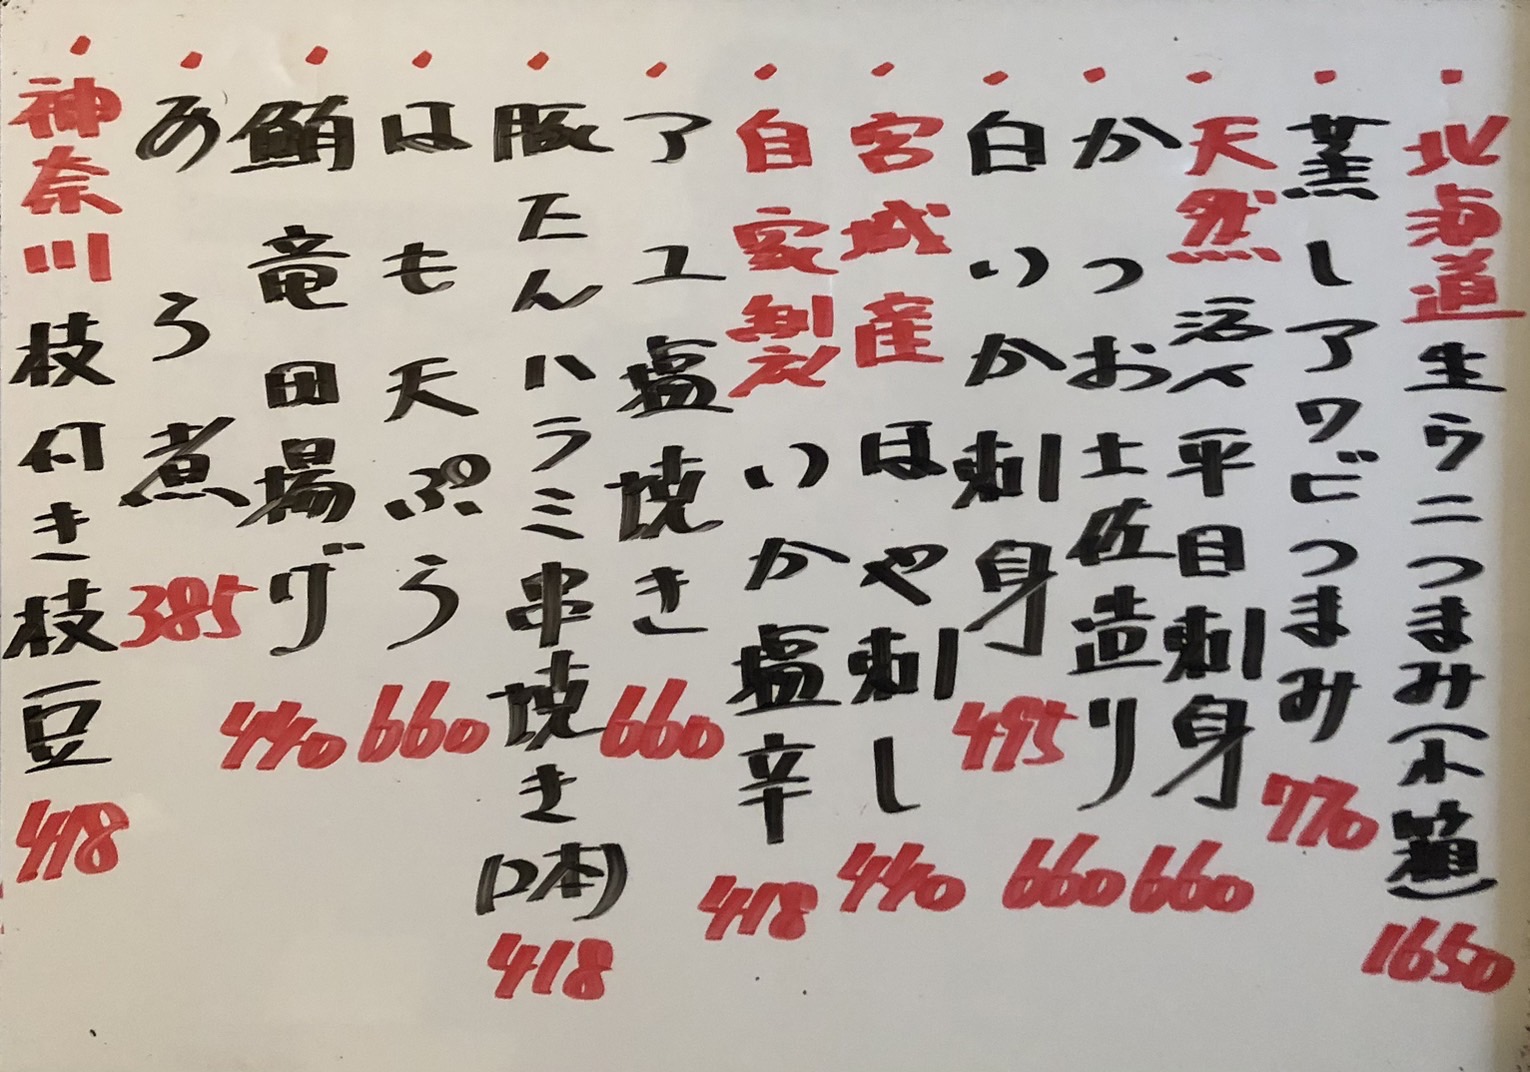 ・北海道生ウニつまみ(小箱)1650
・蒸しアワビつまみ 770
・天然活〆平目刺身 660
・かつお土佐造り 660
・白いか刺身 495
・宮城産ほや刺し 440
・自家製いか塩辛 418
・アユ塩焼き 660
・豚たんハラミ串焼き(2本)418
・はも天ぷら 660
・鮪竜田揚げ 440
・あら煮 385
・神奈川枝付き枝豆 418